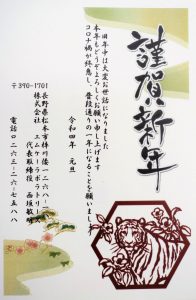 謹賀新年
旧年中は大変お世話になりました
本年もどうぞよろしくお願い申し上げます
コロナ禍が終息し、普段通りの一年になることを願いまし
令和四年 元旦
〒390-1701
長野県松本市梓川
株式会社 エムケーラボラトリーズ
代表取締役
電話〇二六三-二六-七五八八